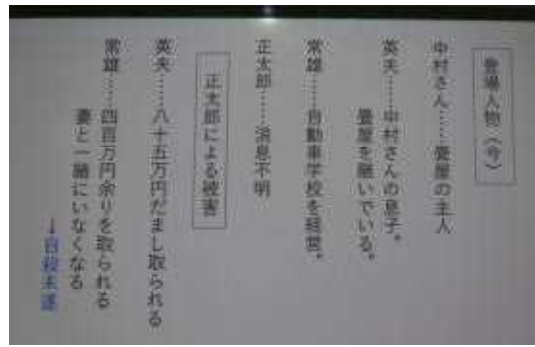 登場人物(今)
中村さん……畳屋の主人
英夫……中村さんの息子。
畳屋を継いでいる。
常雄……自動車学校を経営。
正太郎……消息不明
正太郎による被害
英夫……八十五万円だまし取られる
常雄……四百万円余りを取られる
妻と一緒にいなくなる
→自殺未遂